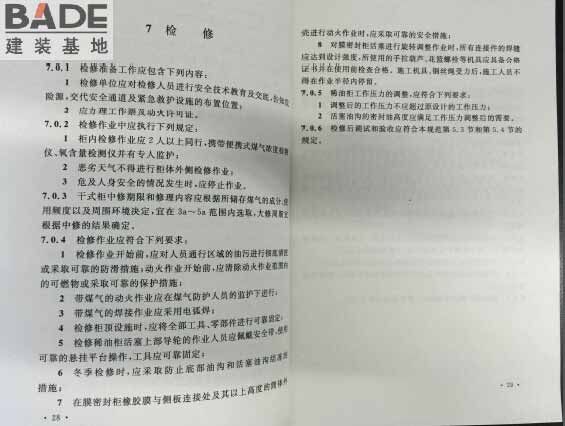 BADE
建装基地
7 检 修
7.0.1 检修准备工作应包含下列内容：
1 检修单位应对检修人员进行安全技术教育及交底，告知危
险源，交代安全通道及紧急救护设施的布置位置；
2 应办理工作票及动火许可证。
7.0.2 检修作业中应执行下列规定：
1 柜内检修作业应2人以上同行，携带便携式煤气浓度检测
仪、氧含量检测仪并有专人监护；
2 恶劣天气不得进行柜体外侧检修作业；
3 危及人身安全的情况发生时，应停止作业。
7.0.3 干式柜中修期限和修理内容应根据所储存煤气的成分、使
用频度以及周围环境决定，宜在3a～5a范围内选取，大修周期宜
根据中修的结果确定。
7.0.4 检修作业应符合下列要求：
1 检修作业开始前，应对人员通行区域的油污进行彻底清理
或采取可靠的防滑措施，动火作业开始前，应清除动火作业范围内
的可燃物或采取可靠的保护措施；
2 带煤气的动火作业应在煤气防护人员的监护下进行；
3 带煤气的焊接作业应采用电弧焊；
4 检修柜顶设施时，应将全部工具、零部件进行可靠固定；
5 检修稀油柜活塞上部导轮的作业人员应佩戴安全带、使用
可靠的悬挂平台操作，工具应可靠固定；
6 冬季检修时，应采取防止底部油沟和活塞油沟结冻的
措施；
7 在膜密封柜橡胶膜与侧板连接处及其以上高度的筒体外
· 28 ·
壳进行动火作业时，应采取可靠的安全措施；
8 对膜密封柜活塞进行旋转调整作业时，所有连接件的焊缝
应达到设计强度，所使用的手拉葫芦、花篮螺栓等机具应具备合格
证书并在使用前检查合格。施工机具、钢丝绳受力后，施工人员不
得在作业半径内停留。
7.0.5 稀油柜工作压力的调整，应符合下列要求：
1 调整后的工作压力不应超过原设计的工作压力；
2 活塞油沟的密封油高度应满足工作压力调整后的需要。
7.0.6 检修后调试和验收应符合本规范第5.3节和第5.4节的
规定。
· 29 ·